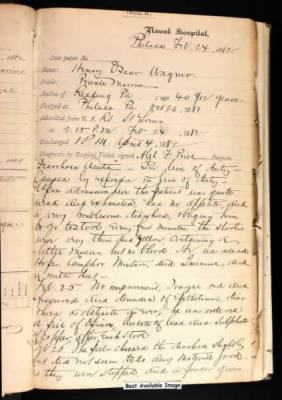 Naval Hospital,
Philada Feb 24, 1882
Case paper No.
Name: Henry Oscar Wagner
Rank: Private Marine
Native of Reading Pa age 40 4/12 years
Shipped at Philada Pa 1881
Admitted from U.S. R.S. St Louis
at 2.15 P.M. Feb 24 1882
Discharged 10 P.M. April 4, 1882
Diagnosis by Hospital Ticket, signed A F Price Surgeon
Diarrhoea Acuta - In line of duty -
line of duty -
Upon admission here the patient was quite
weak and exhausted, had no appetite, and
a very troublesome diarrhoea, obliging him
to go to stool every few minutes. the stools
were very thin and yellow containing a
little mucus but no blood. He was ordered
Hope's Camphor Mixture, and Quinine, and
a milk diet -
Feb. 25 No improvement. Tongue red and
and
there is He was ordered
a pill of Opium, Acetate of Lead and Sulphate
of Copper after each stool
26. The pills checked the diarrhoea slightly
but did not seem to do any material good
so they were stopped and a powder given
Best Available Image